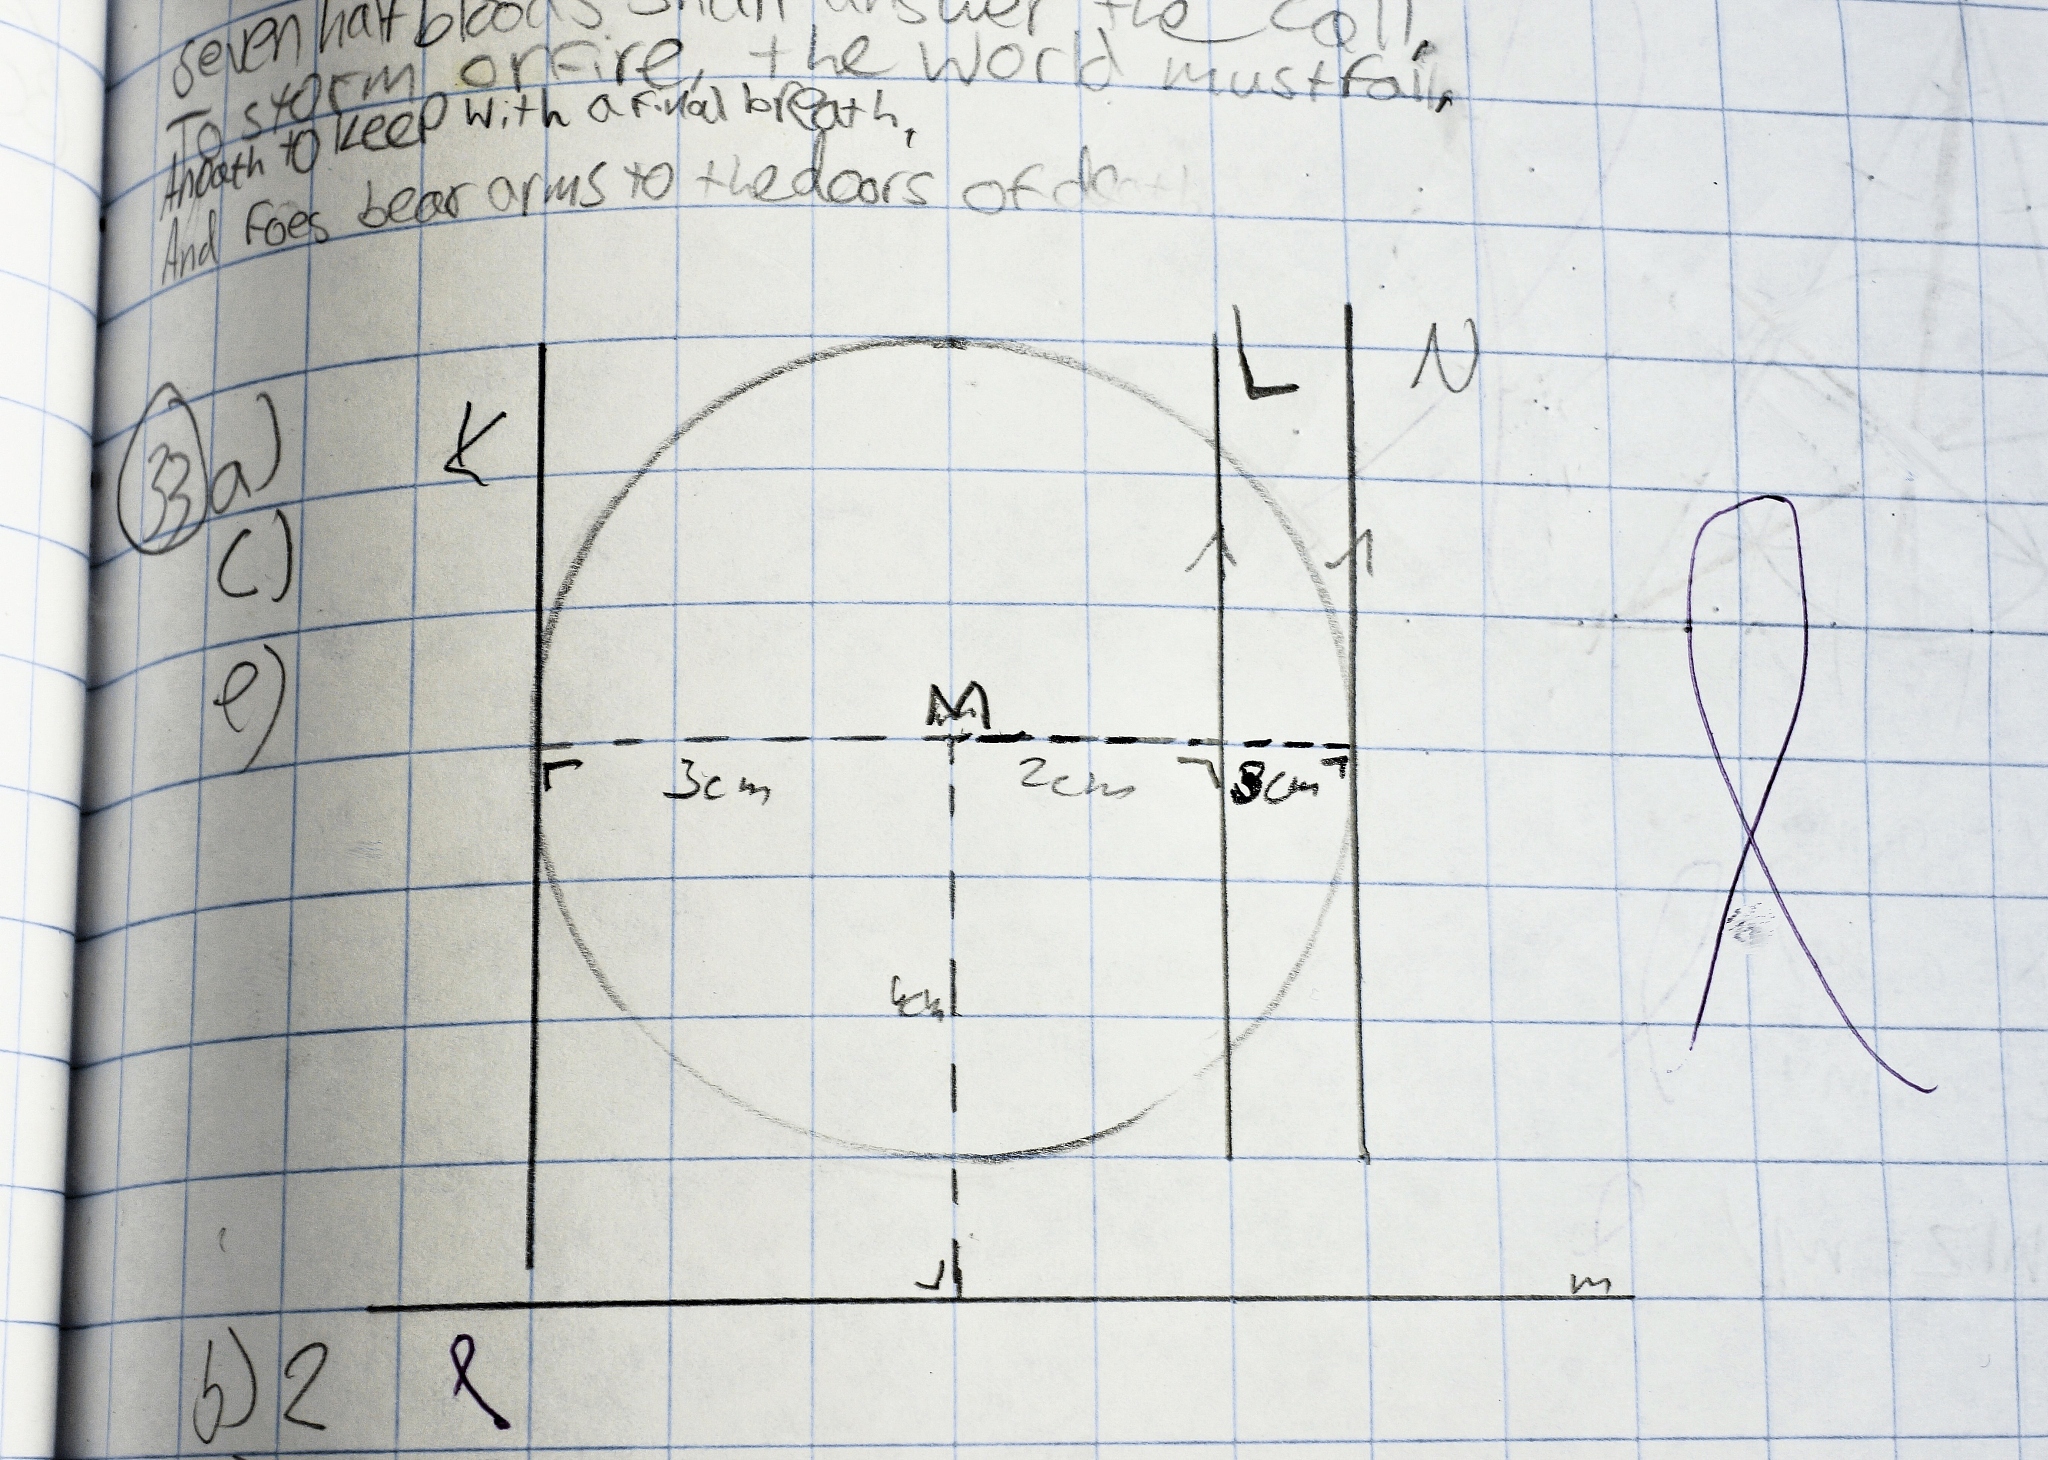 Seven half bloods shall answer the call.
To storm or Fire, the World must fall.
An oath to keep with a final breath,
And Foes bear arms to the doors of death
33 a)
c)
e)
K
L
N
M
3cm
2cm
3cm
4cm
m
b) 2